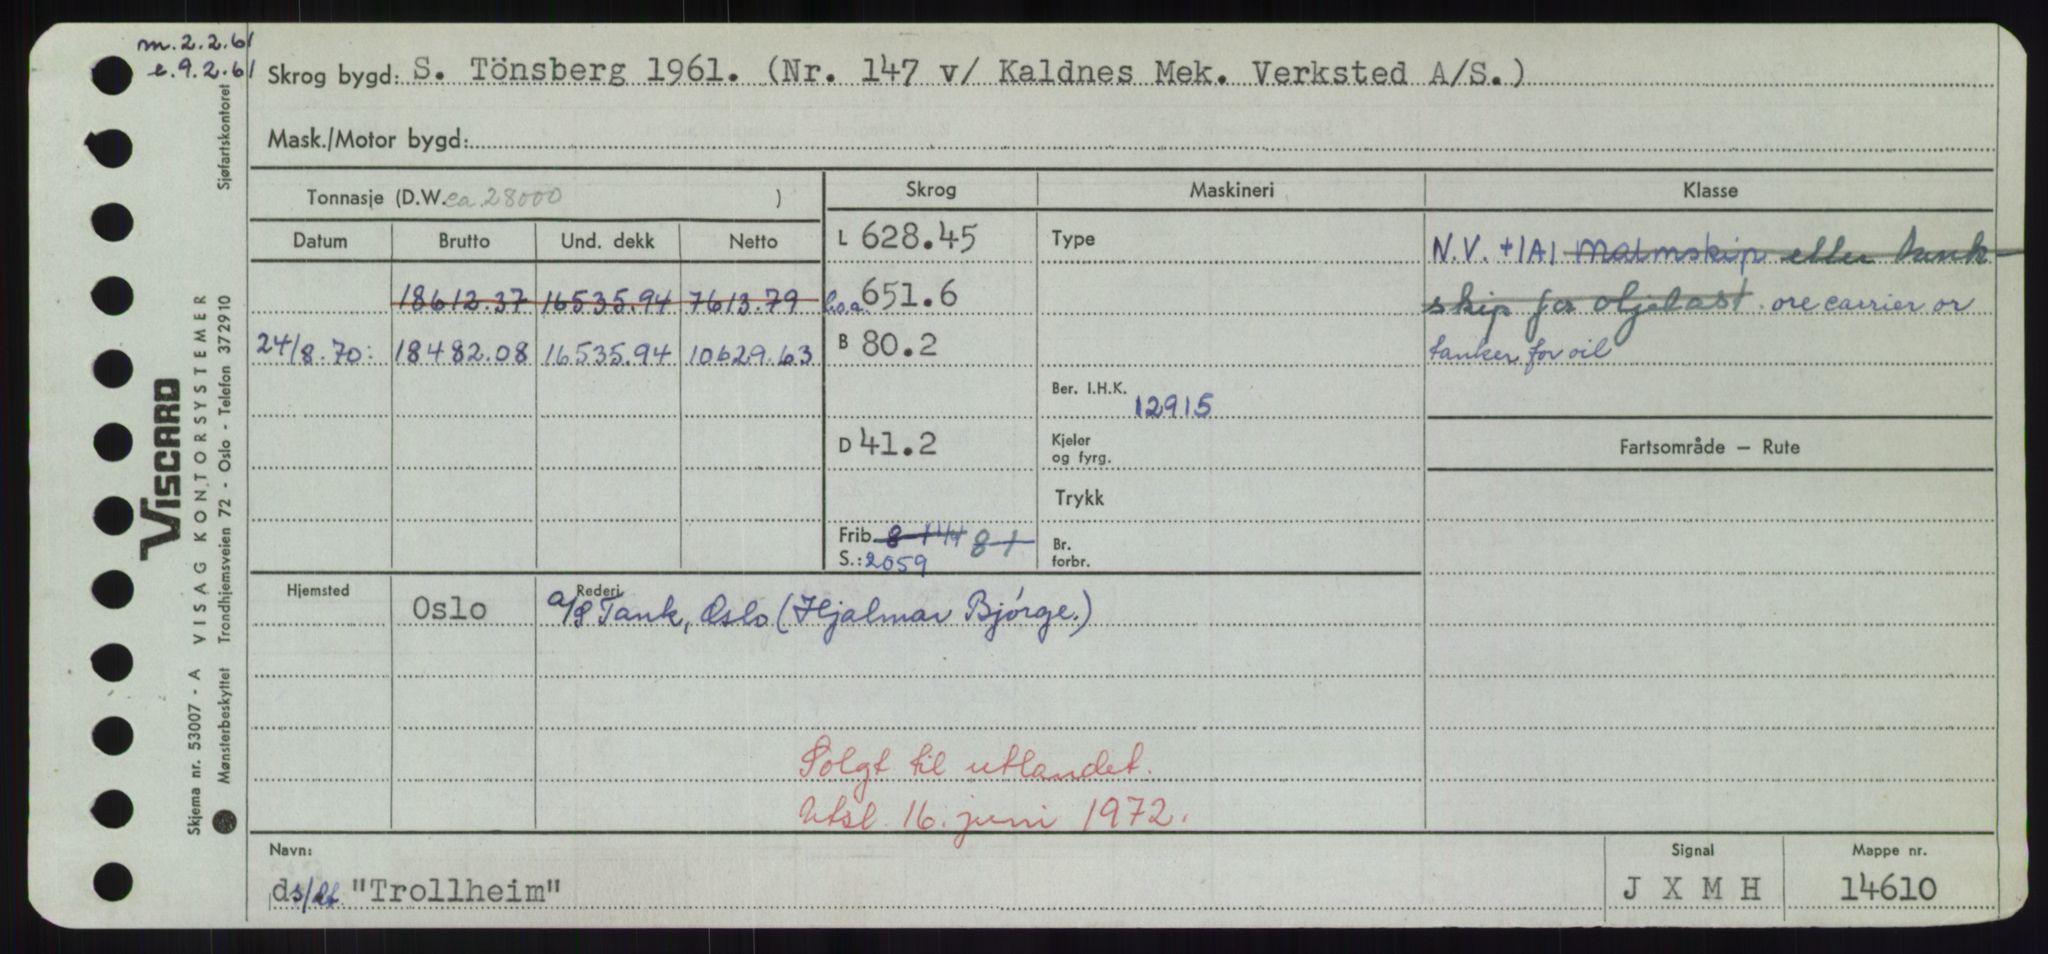 m.2.2.61
e.9.2.61
Skrog bygd: S. Tönsberg 1961. (Nr. 147 v/ Kaldnes Mek. Verksted A/S.)
Mask./Motor bygd:
Tonnasje (D.W. ca 28000 )
Skrog Maskineri Klasse
Datum Brutto Und. dekk Netto
L 628.45 Type N.V. +1A1 Malmskip eller tank-
18612.37 16535.94 7613.79 l.o.a. 651.6 skip for oljelast. ore carrier or
24/8.70: 18482.08 16535.94 10629.63 B 80.2 tanker for oil
Ber. I.H.K. 12915
D 41.2 Kjeler
og fyrg.
Fartsområde – Rute
Trykk
Frib. 8-1 Br.
S.: 2059 forbr.
Hjemsted Oslo Rederi a/s Tank, Oslo (Hjalmar Bjørge.)
Solgt til utlandet.
Utsl. 16. juni 1972.
Navn: Signal Mappe nr.
ds/ "Trollheim" J X M H 14610
VISCARD
Skjema nr. 53007 - A VISAG KONTORSYSTEMER
Mønsterbeskyttet Trondhjemsveien 72 - Oslo - Telefon 372910 Sjøfartskontoret